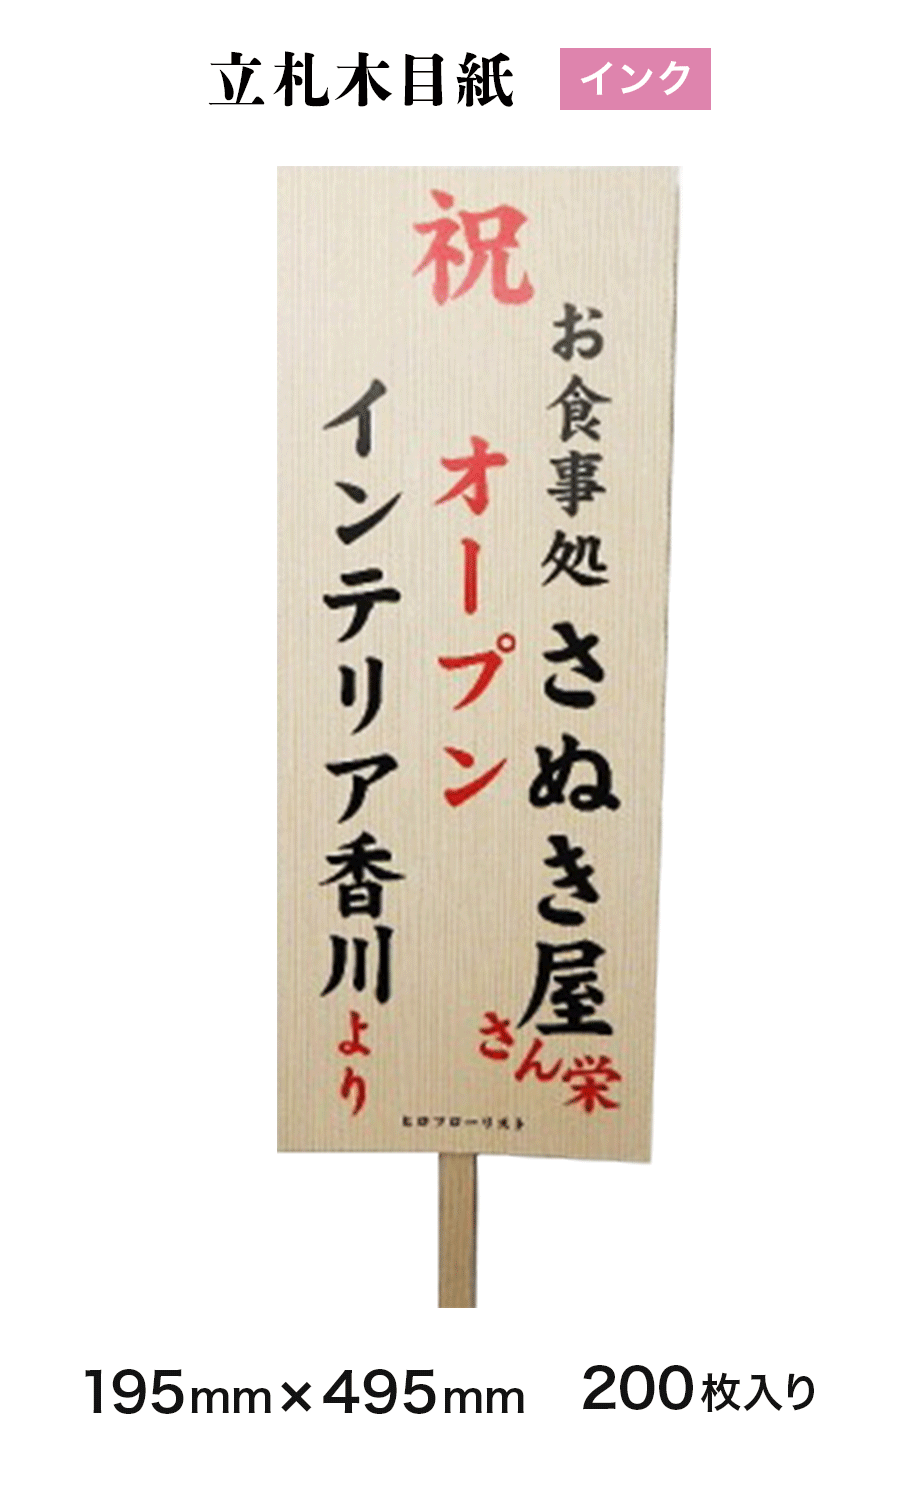 立札木目紙
インク
祝
お食事処 さぬき屋さん栄
オープン
インテリア香川より
ヒロフローリスト
195mm×495mm
200枚入り